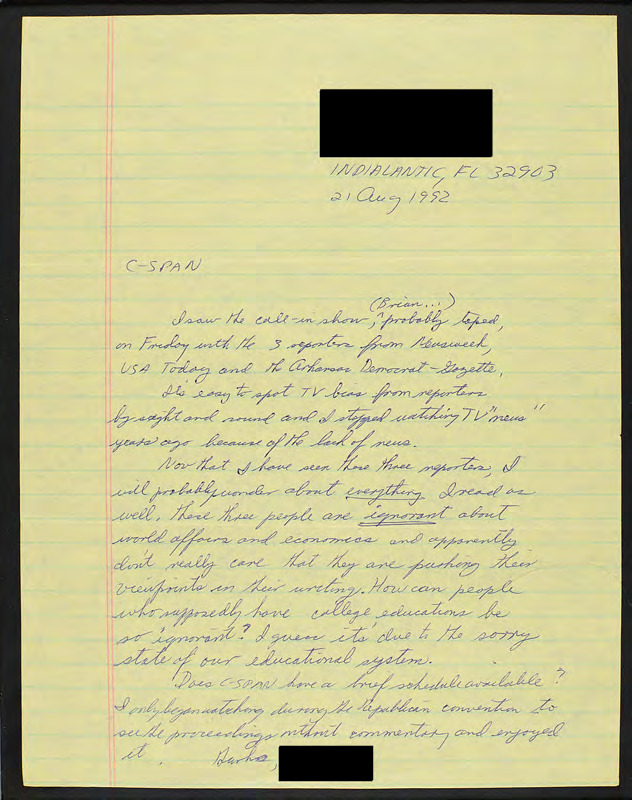 INDIALANTIC, FL 32903
21 Aug 1992
C-SPAN
(Brian...)
I saw the call-in show, probably taped,
on Friday with the 3 reporters from Newsweek,
USA Today and the Arkansas Democrat-Gazette.
It's easy to spot TV bias from reporters
by sight and sound and I stopped watching TV "news"
years ago because of the lack of news.
Now that I have seen these three reporters, I
will probably wonder about everything I read as
well. These three people are ignorant about
world affairs and economics and apparently
don't really care that they are pushing their
viewpoints in their writing. How can people
who supposedly have college educations be
so ignorant? I guess it's due to the sorry
state of our educational system.
Does C-SPAN have a brief schedule available?
I only began watching during the Republican convention to
see the proceedings without commentary and enjoyed
it.